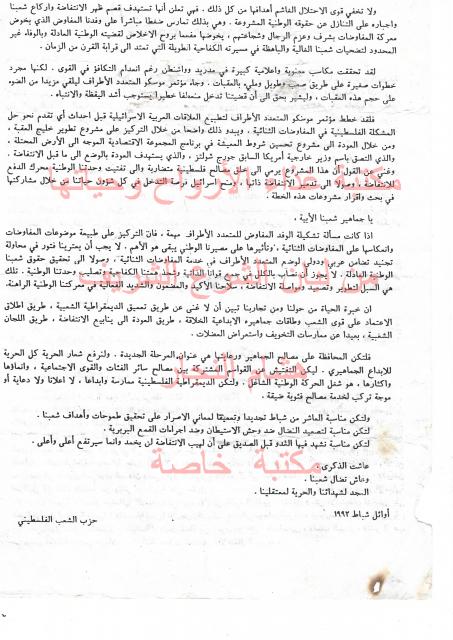 ولا تخفي قوى الاحتلال الغاشم أهدافها من كل ذلك . فهي تعلن أنها تستهدف قصم ظهر الانتفاضة واركاع شعبنا
واجباره على التنازل عن حقوقه الوطنية المشروعة . وهي بذلك تمارس ضغطا مباشرا على وفدنا المفاوض الذي يخوض
معركة المفاوضات بشرف وعزم الرجال وشجاعتهم ، يخوضها مفعما بروح الاخلاص لقضيته الوطنية العادلة وبالوفاء غير
المحدود لتضحيات شعبنا الغالية والباهظة في مسيرته الكفاحية الطويلة التي تمتد الى قرابة القرن من الزمان .
لقد تحققت مكاسب معنوية واعلامية كبيرة في مدريد وواشنطن رغم انعدام التكافؤ في القوى . لكنها مجرد
خطوات صغيرة على طريق صعب وطويل ومليء بالعقبات . وجاء مؤتمر موسكو المتعدد الأطراف ليلقي مزيدا من الضوء
على حجم هذه العقبات ، وليشير بحق الى أن قضيتنا تدخل منعطفا خطيرا يستوجب أشد اليقظة والانتباه .
فلقد خطط مؤتمر موسكو المتعدد الأطراف لتطبيع العلاقات العربية الاسرائيلية قبل احداث أي تقدم نحو حل
المشكلة الفلسطينية في المفاوضات الثنائية . ويبدو ذلك واضحا من خلال التركيز على مشروع تطوير خليج العقبة ،
ومن خلال العودة الى مشروع تحسين شروط المعيشة في برنامج المجموعة الاقتصادية الموجه الى الأرض المحتلة ،
والذي التصق باسم وزير خارجية أمريكا السابق جورج شولتز ، والذي يستهدف العودة بالوضع الى ما قبل الانتفاضة .
وغني عن القول أن هذا المشروع يرمي الى خلق مصالح فلسطينية متضاربة والى تفتيت وحدتنا الوطنية محرك الدفع
للانتفاضة ، وصولا الى تدمير الانتفاضة ذاتيا ، ومنح اسرائيل فرصة التدخل في كل شؤون حياتنا من خلال مشاركتها
في بحث واقرار مشروعات هذه الخطة .
مكتبة علاء الأروع رحباتها
يا جماهير شعبنا الأبية .
اذا كانت مسألة تشكيلة الوفد المفاوض للمتعدد الأطراف مهمة ، فان التركيز على طبيعة موضوعات المفاوضات
وانعكاسها على المفاوضات الثنائية ، وتأثيرها على مصيرنا الوطني يبقى هو الأهم . لا يجوز أن يعترينا فتور في محاولة
تجنيد تضامن عربي ودولي لوضع المتعدد الأطراف في خدمة المفاوضات الثنائية . وصولا الى تحقيق حقوق شعبنا
الوطنية العادلة . لا يجوز أن نصاب بالكلل في جمع قوانا الذاتية وتنظيم قدراتنا الكفاحية وتصليب وحدتنا الوطنية . تلك
هي السبل لتطوير وتصعيد ومواصلة الانتفاضة ، سلاحنا الأكيد والمضمون والشديد الفعالية في معركتنا الوطنية الراهنة.
الشريف
ان خبرة الحياة من حولنا ومن تجاربنا تبين أن لا غنى عن طريق تعميق الديمقراطية الشعبية ، طريق اطلاق
الاعتماد على قوى الشعب وطاقات جماهيره الابداعية الخلاقة ، طريق العودة الى ينابيع الانتفاضة ، طريق اللجان
الشعبية ، بعيدا عن ممارسات التخويف واستعراض العضلات .
فلتكن المحافظة على مصالح الجماهير ورعايتها هي عنوان المرحلة الجديدة . ولنرفع شعار الحرية كل الحرية
للابداع الجماهيري . ليكن التفتيش عن القواسم المشتركة بين مصالح سائر الفئات والقوى الاجتماعية ، وانماؤها
واكثارها ، هو شغل الحركة الوطنية الشاغل . ولتكن الديمقراطية الفلسطينية ممارسة وابداعا ، لا اعلانا ولا دعاية أو
موجة تركب لخدمة مصالح فئوية ضيقة .
هشام النجار
ولتكن مناسبة العاشر من شباط تجديدا وتعميقا لمعاني الاصرار على تحقيق طموحات وأهداف شعبنا .
لتكن مناسبة لتصعيد النضال ضد وحش الاستيطان وضد اجراءات القمع البربرية .
لتكن مناسبة نشهد فيها العدو قبل الصديق على أن لهيب الانتفاضة لن يخمد وانما سيرتفع أعلى وأعلى .
مكتبة خاصة
عاشت الذكرى .
وعاش نضال شعبنا .
المجد لشهدائنا والحرية لمعتقلينا .
أوائل شباط ١٩٩٢
حزب الشعب الفلسطيني